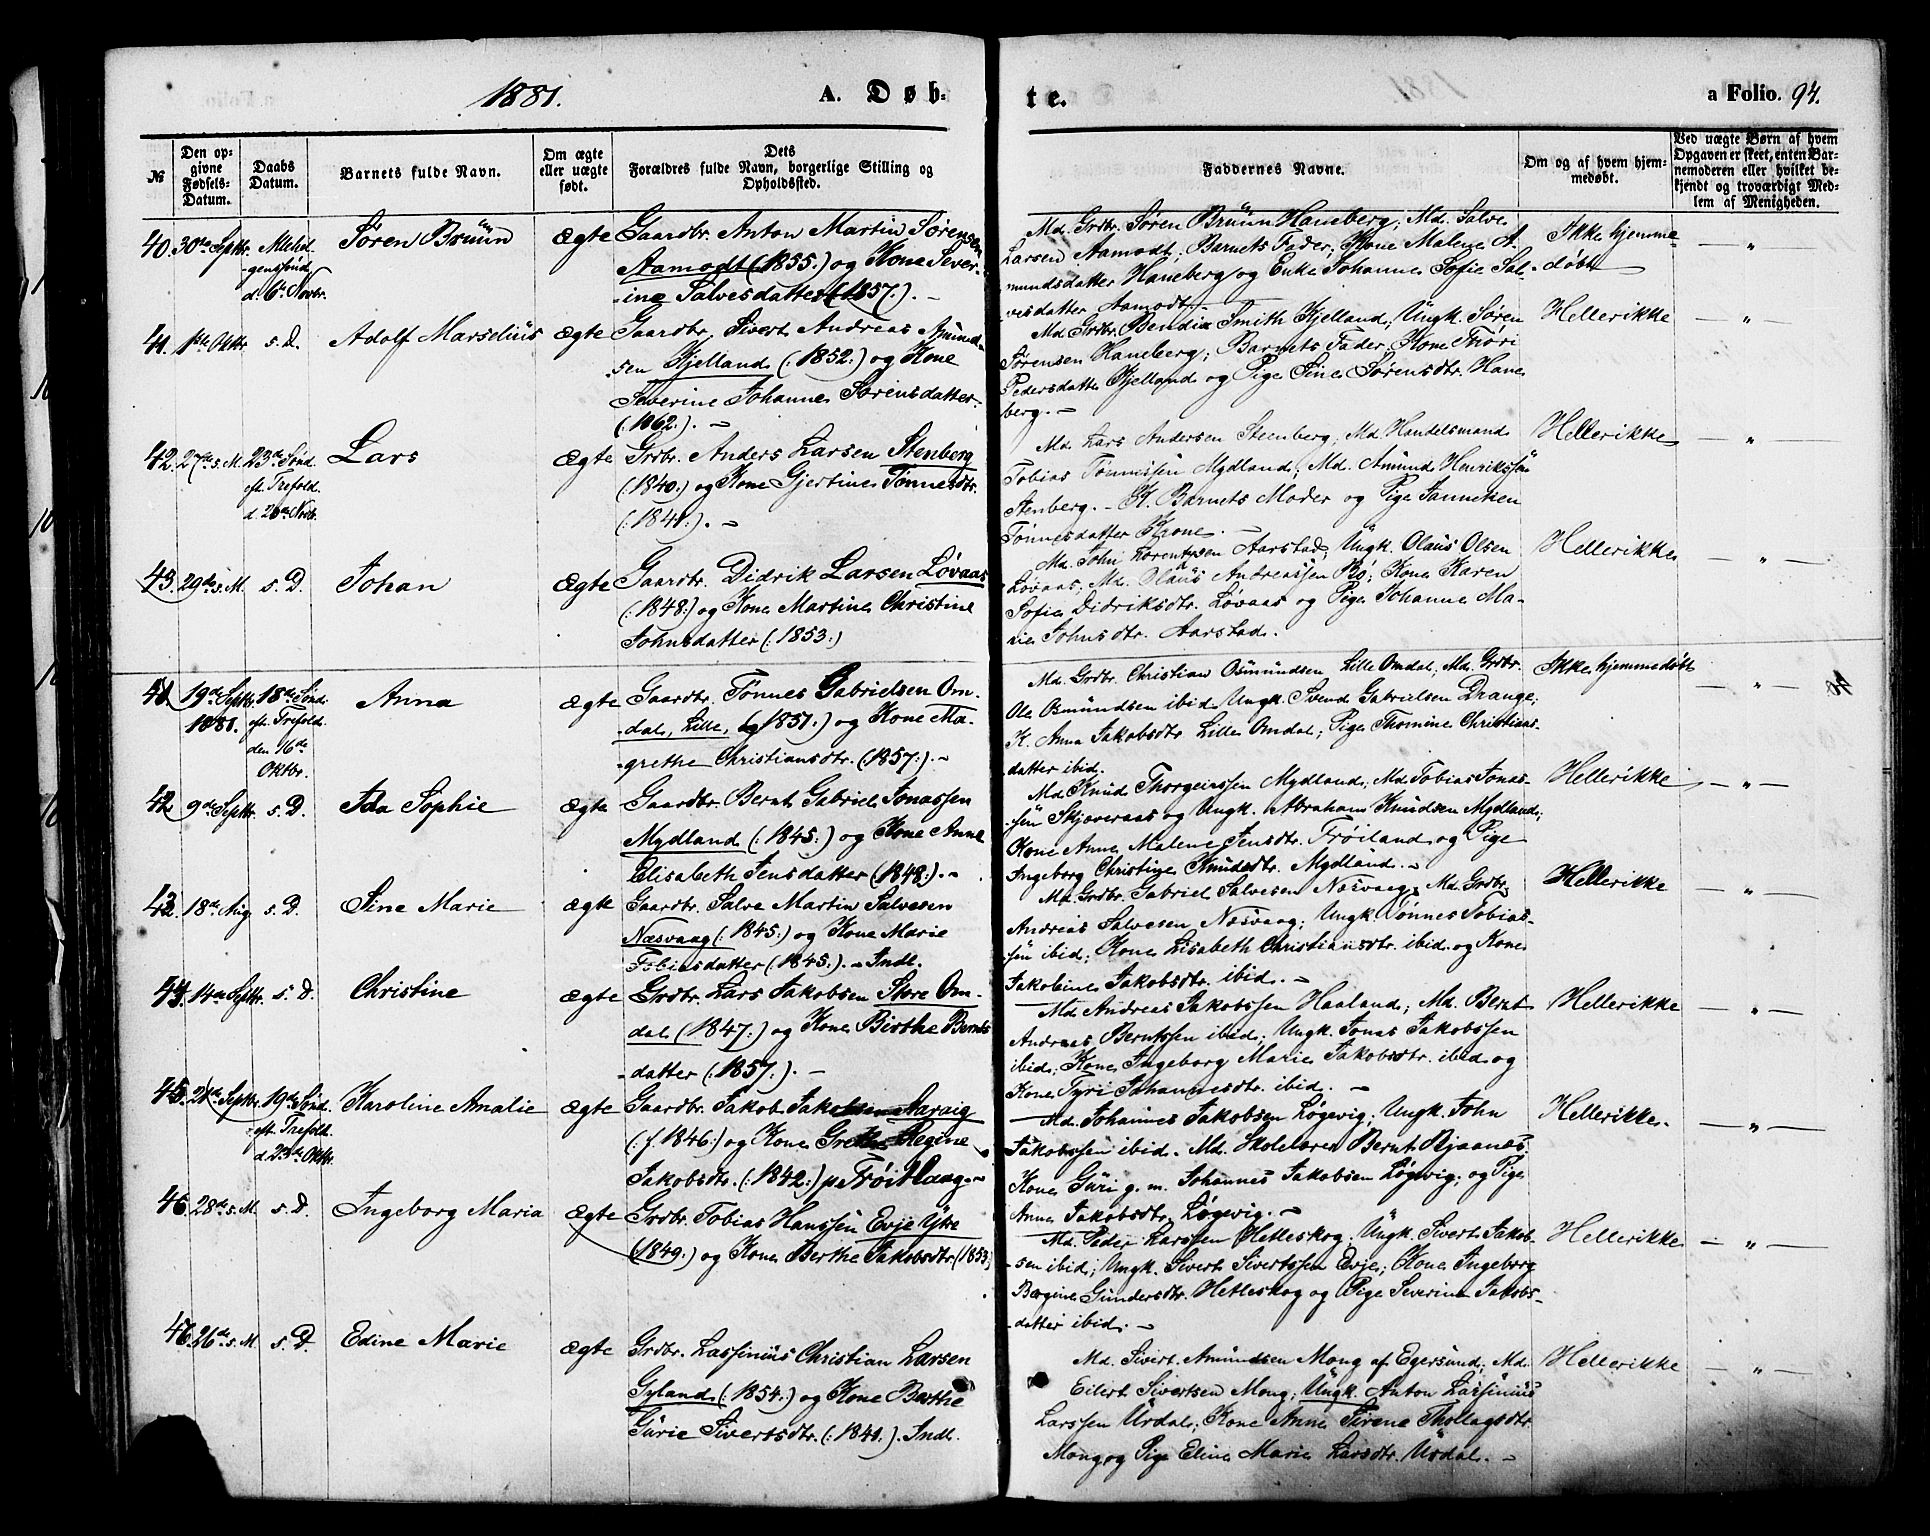 1881. A. Døb- te. a Folio. 94.
№
Den op-
givne
Fødsels-
Datum.
Daabs
Datum.
Barnets fulde Navn.
Om ægte
eller uægte
født.
Dets
Forældres fulde Navn, borgerlige Stilling og
Opholdssted.
Faddernes Navne.
Om og af hvem hjem-
medøbt.
Ved uægte Børn af hvem
Opgaven er skeet, enten Bar-
nemoderen eller hvilket be-
kjendt og troværdigt Med-
lem af Menigheden.
40. 30te Septbr.
Allehel
-genssønd.
d. 6te Novbr.
Søren Bruün
ægte
Gaardbr. Anton Martin Sørensen
Aamodt (1855.) og Kone Sever-
-ine Salvesdatter (1857.). -
Md. Grdbr. Søren Brüün Haneberg; Md. Salve
Larsen Aamodt; Barnets Fader; Kone Malene A-
mundsdatter Haneberg og Enke Johanne Sofie Sal-
vesdatter Aamodt. -
Ikke hjemme-
døbt
— " —
41. 1ste Oktbr.
s. D.
Adolf Marselius
ægte
Gaardbr. Sivert Andreas Amund-
sen Kjelland (:1852:) og Kone
Severine Johanne Sørensdatter
(:1862:). -
Md. Grdbr. Bendix Smith Kjelland; Ungk. Søren
Sørensen Haneberg; Barnets Fader; Kone
Pedersdatter Kjelland og Pige Sine Sørensdtr. Hane
berg. -
Hellerikke
— " —
42. 27de s. M.
23de Sønd.
eft. Trefold.
d. 20de Novbr.
Lars
ægte
Grdbr. Anders Larsen Stenberg
(:1840:) og Kone Gjertine Tønnesdtr.
(:1841:). -
Md. Lars Andersen Steenberg; Md. Handelsmand
Tobias Tønnessen Mydland; Md. Amund Henrikssen
Stenberg. - K. Barnets Moder og Pige Janneken
Tønnesdatter Krone. -
Hellerikke
— " —
43. 29de s. M.
s. D.
Johan
ægte
Gaardbr. Didrik Larsen Løvaas
(:1848:) og Kone Martine Christine
Johnsdatter (:1853:)
Md. John Lorentzen Aarstad; Ungk. Olaus Olsen
Løvaas; Md. Olaus Andreassen Bø; Kone Karen
Sofie Didriksdtr. Løvaas og Pige Johanne Ma-
rie Johnsdtr. Aarstad.
Hellerikke
— " —
41. 19de Septbr.
1881.
18de Sønd.
eft. Trefold.
den 16de
Oktbr.
Anna
ægte
Gaardbr. Tønnes Gabrielsen Om-
-dal, Lille, (1851.) og Kone Ma-
-grethe Christiansdtr. (:1857:). -
Md. Grdbr. Christian Osmundsen, Lille Omdal; Md. Grdbr.
Ole Osmundsen ibid. Ungk. Svend Gabrielsen Drange;
K. Anna Jakobsdtr. Lille Omdal; Pige Thomine Christians-
datter ibid.
Ikke hjemmedøbt
— " —
42. 9de Septbr.
s. D.
Ida Sophie
ægte
Gaardbr. Bernt Gabriel Jonassen
Mydland (:1845:) og Kone Anne
Elisabeth Jensdatter (1848:). -
Md. Knud Thorgeirssen Mydland; Md. Tobias Jonas-
sen Skjæveraas og Ungk. Abraham Knudsen Mydland;
Kone Anne Malene Jensdtr. Frøiland og Pige
Ingeborg Christine Knudsdtr. Mydland. -
Hellerikke
— " —
43. 18de Aug.
s. D.
Sine Marie
ægte
Gaardbr. Salve Martin Salvesen
Nesvaag (:1845:) og Kone Marie
Tobiasdatter (:1845:). - Indl.
Md. Grdbr. Gabriel Salvesen Nesvaag, Md. Grdbr.
Andreas Salvesen Nesvaag; Ungk. Tønnes Tobias-
sen ibid; Kone Lisabeth Christiansdtr. ibid. og Kone
Jakobine Jakobsdtr. ibid. -
Hellerikke
— " —
44. 14de Septbr.
s. D.
Christine
ægte
Grdbr. Lars Jakobsen Store Om-
dal (1847.) og Kone Birthe Bernts
-datter (:1857:). -
Md. Andreas Jakobssen Haaland; Md. Bernt
Andreas Berntssen ibid; Ungk. Jonas Jakobssen
ibid; Kone Ingeborg Marie Jakobsdtr. ibid og
Kone Tyri Johannesdtr. ibid. -
Hellerikke
— " —
45. 21de Septbr.
19de Sønd.
eft. Trefold.
d. 23de Oktbr.
Karoline Amalie
ægte
Gaardbr. Jakob Jakobsen
(:f. 1846:) og Kone Grethe Regine
Jakobsdtr. (:1842:)
Md. Johannes Jakobsen Løgevig; Ungk. John
Jakobssen ibid. Md. Skolelærer Bernt Bjaanes.
Kone Guri g. m. Johannes Jakobsen Løgevig; og Pige
Anne Jakobsdtr. Løgevig. -
Hellerikke.
— " —
46. 28de s. M.
s. D.
Ingeborg Maria
ægte
Grdbr. Tobias Hanssen Evje Ytre
(1849.) og Kone Berthe Jakobsdtr. (1853.)
Md. Peder Larssen Hetleskog. Ungk. Sivert Jakob-
-sen ibid; Ungk. Sivert Sivertssen Evje; Kone Ingeborg
Bergine Gundersdtr. Hetleskog og Pige Severine Jakobs-
datter ibid. -
Hellerikke
— " —
47. 26de s. M.
s. D.
Edine Marie
ægte
Grdbr. Lassinius Christian Larsen
Gyland (:1854:) og Kone Berthe
Gurie Sivertsdtr. (:1841:). Indl.
Md. Sivert Amundsen Mong af Egersund; Md.
Eilert Sivertsen Mong; Ungk. Anton Lassinius
Larssen Urdal; Kone Anne Sirene Thollagsdtr
Mong og Pige Eline Marie Larsdtr. Urdal. -
Hellerikke
— " —